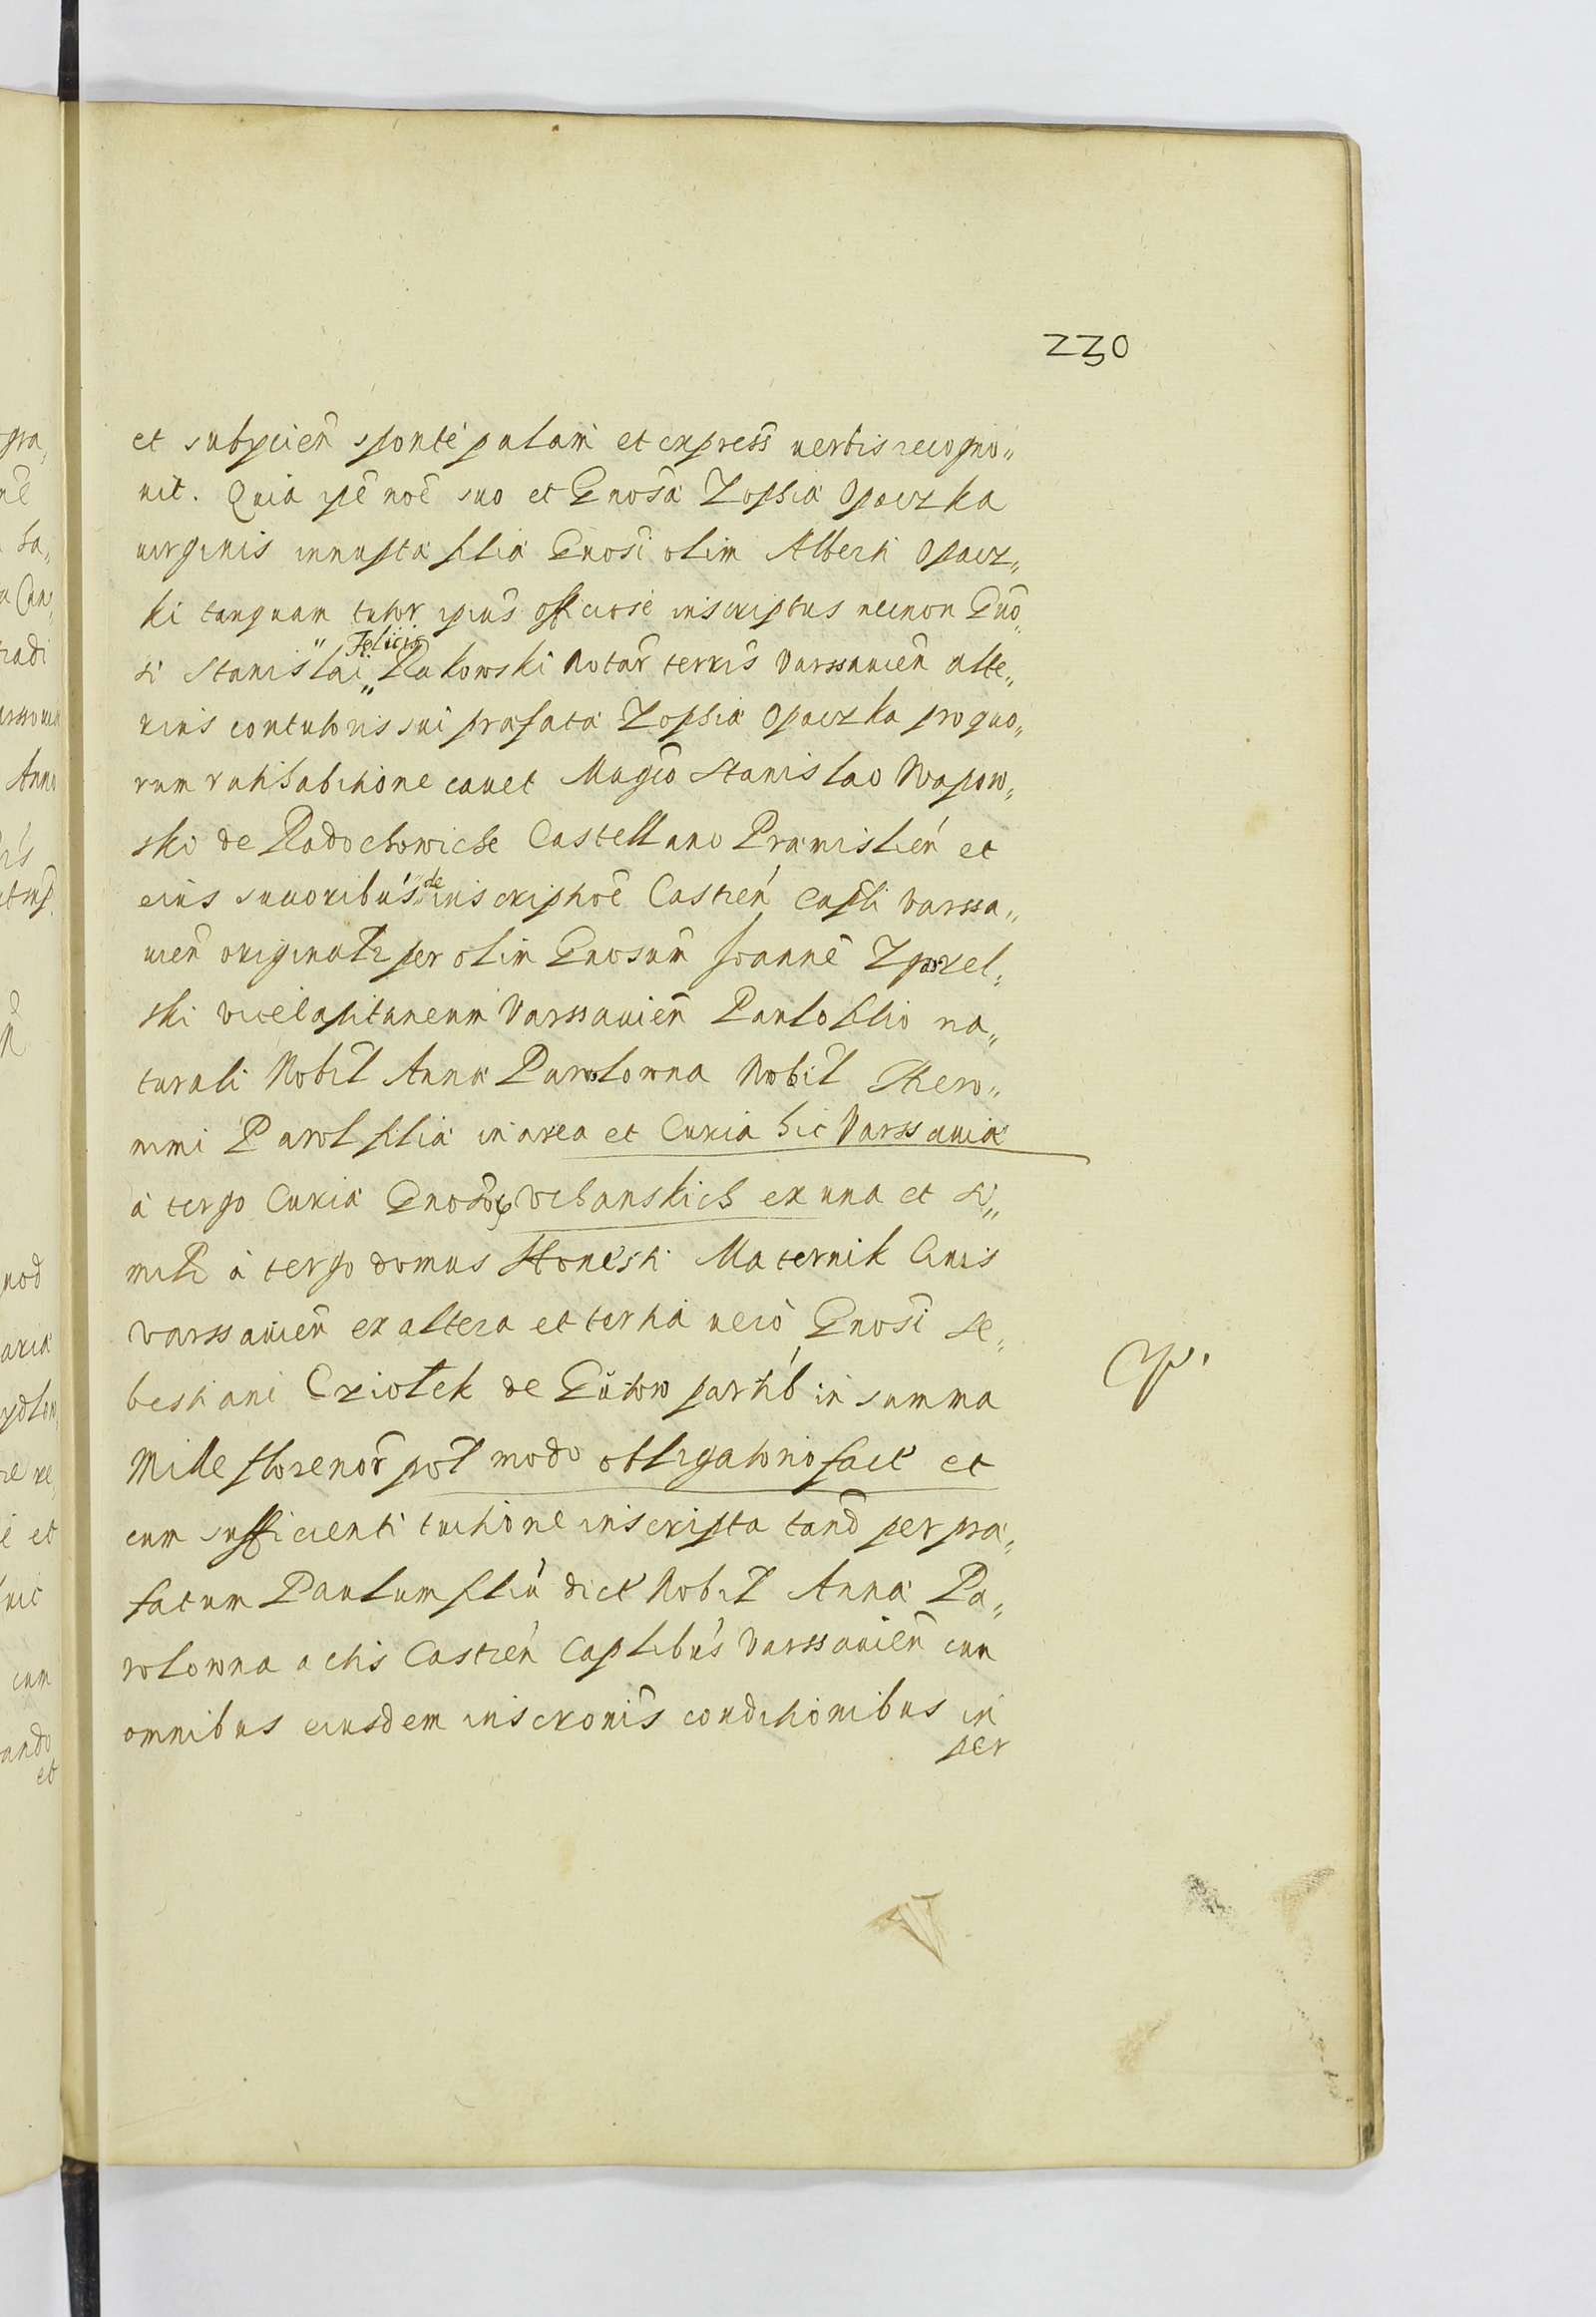 230
et subycien̄ sponte palam et express̄ verbis recogno„
vit. Quia ipē noē suo et Gnosæ Zophiæ Opaczka
virginis innuptæ filiæ Gnosi olim Alberti Opacz„
ki tanquam tutor ipius officiose inscriptus necnon Gno„
si Stanislai „Felicis„ Rakowski Notar̄ terrīs Varssavien̄ alte„
rius contutoris sui præfatæ Zophiæ Opaczka pro quo„
rum ratihabitione cavet Magco Stanislao Wapow„
ski de Radochowicze Castellano Præmislien̄ et
eius succoribus de inscriptōe Castren̄ Capli Varssa„
vien̄ originalr per olim Gnosum Joannē Zgorzel„
ski vicecapitaneum Varssavien̄ Paulo filio na„
turali Nobil Annæ Parolowna Nobil Hiero„
nimi Parol filiæ in area et Curia hic Varssaviæ
à tergo Curiæ Gnosor Uchanskich ex una et si„
milr à tergo domus Honesti Maternik Civis
Varssavien̄ ex altera et tertia vero Gnosi Se„
bestiani Ciołek de Gutow partib in summa
Mille florenor̄ pol modo obligatorio fact et
cum sufficienti tuitione inscripta tand per præ„
fatum Paulum filiū dict Nobil Annæ Pa„
rolowna actis Castren̄ Caplibus Varssavien̄ cum
omnibus eiusdem inscronis conditionibus in
per